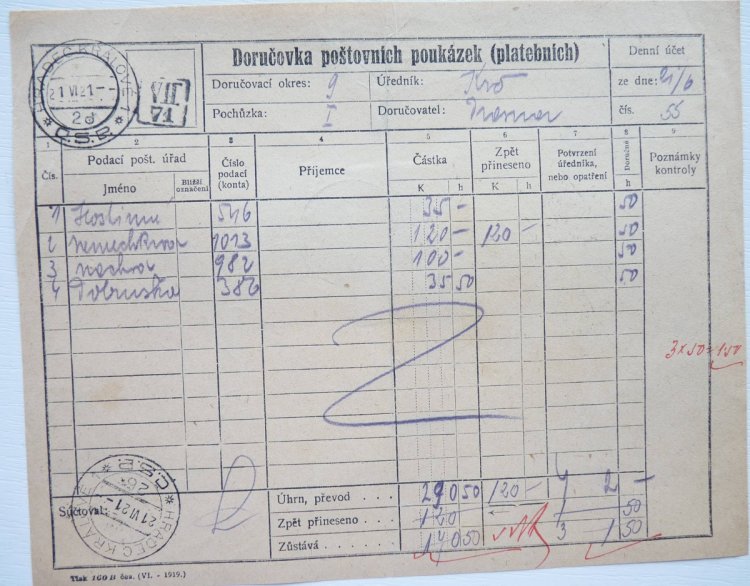 Doručovka poštovních poukázek (platebních)
Denní účet
Doručovací okres: 9
Úředník:
ze dne: 21/6
Pochůzka: I
Doručovatel:
čís. 55
HRADEC KRÁLOVÉ 1
21 VI 21
2d
Č.S.P.
VII
71
1 2 3 4 5 6 7 8 9
Čís.
Podací pošt. úřad
Jméno
Bližší označení
Číslo podací (konta)
Příjemce
Částka
K h
Zpět přineseno
K h
Potvrzení úředníka, nebo opatření
Doručné
h
Poznámky kontroly
1 546 35 - 50
2 1013 120 - 120 - 50
3 982 100 - 50
4 Dobruska 382 35 50 50
3x50=150
Sečtoval:
Úhrn, převod . . . . 290 50 120 - 4 2 -
Zpět přineseno . . . 120 50
Zůstává . . . . . 170 50 3 1 50
HRADEC KRÁLOVÉ
21 VI 21
Č.S.P.
Tlak 160 B čes. (VI. - 1919.)